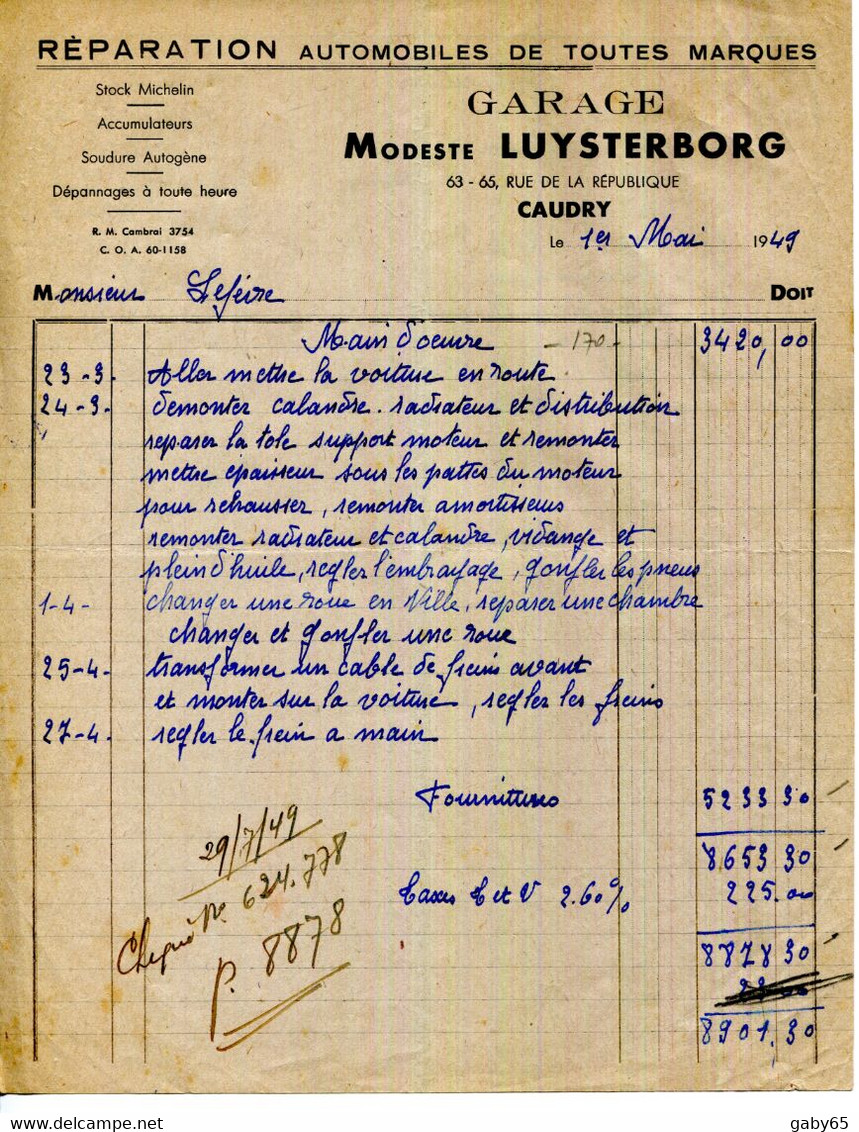 RÉPARATION AUTOMOBILES DE TOUTES MARQUES
Stock Michelin
Accumulateurs
Soudure Autogène
Dépannages à toute heure
R. M. Cambrai 3754
C. O. A. 60-1158
GARAGE
MODESTE LUYSTERBORG
63 - 65, RUE DE LA RÉPUBLIQUE
CAUDRY
Le 1er Mai 1949
Monsieur Lefèvre DOIT
Main d'oeuvre - 170 - 3420,00
23-3. Aller mettre la voiture en route
24-3. demonter calandre. radiateur et distribution
reparer la tole support moteur et remonter
mettre epaisseur sous les pattes du moteur
pour rehausser, remonter amortisseurs
remonter radiateur et calandre, vidange et
plein d'huile, regler l'embrayage, gonfler les pneus
1-4- changer une roue en Ville, reparer une chambre
changer et gonfler une roue
25-4. transformer un cable de freins avant
et monter sur la voiture, regler les freins
27-4. regler le frein a main
Fournitures 5233 30
8653 30
Taxes T et V 2.60% 225.00
8878 30
22 00
8901.30
29/7/49
Chèque No 624.778
P. 8878
www.delcampe.net
gaby65